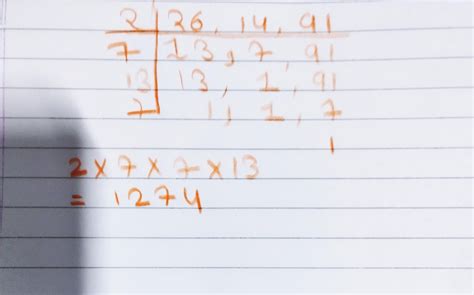 2 | 26, 14, 91
7 | 13, 7, 91
13 | 13, 1, 91
7 | 1, 1, 7
1
2 × 7 × 7 × 13
= 1274